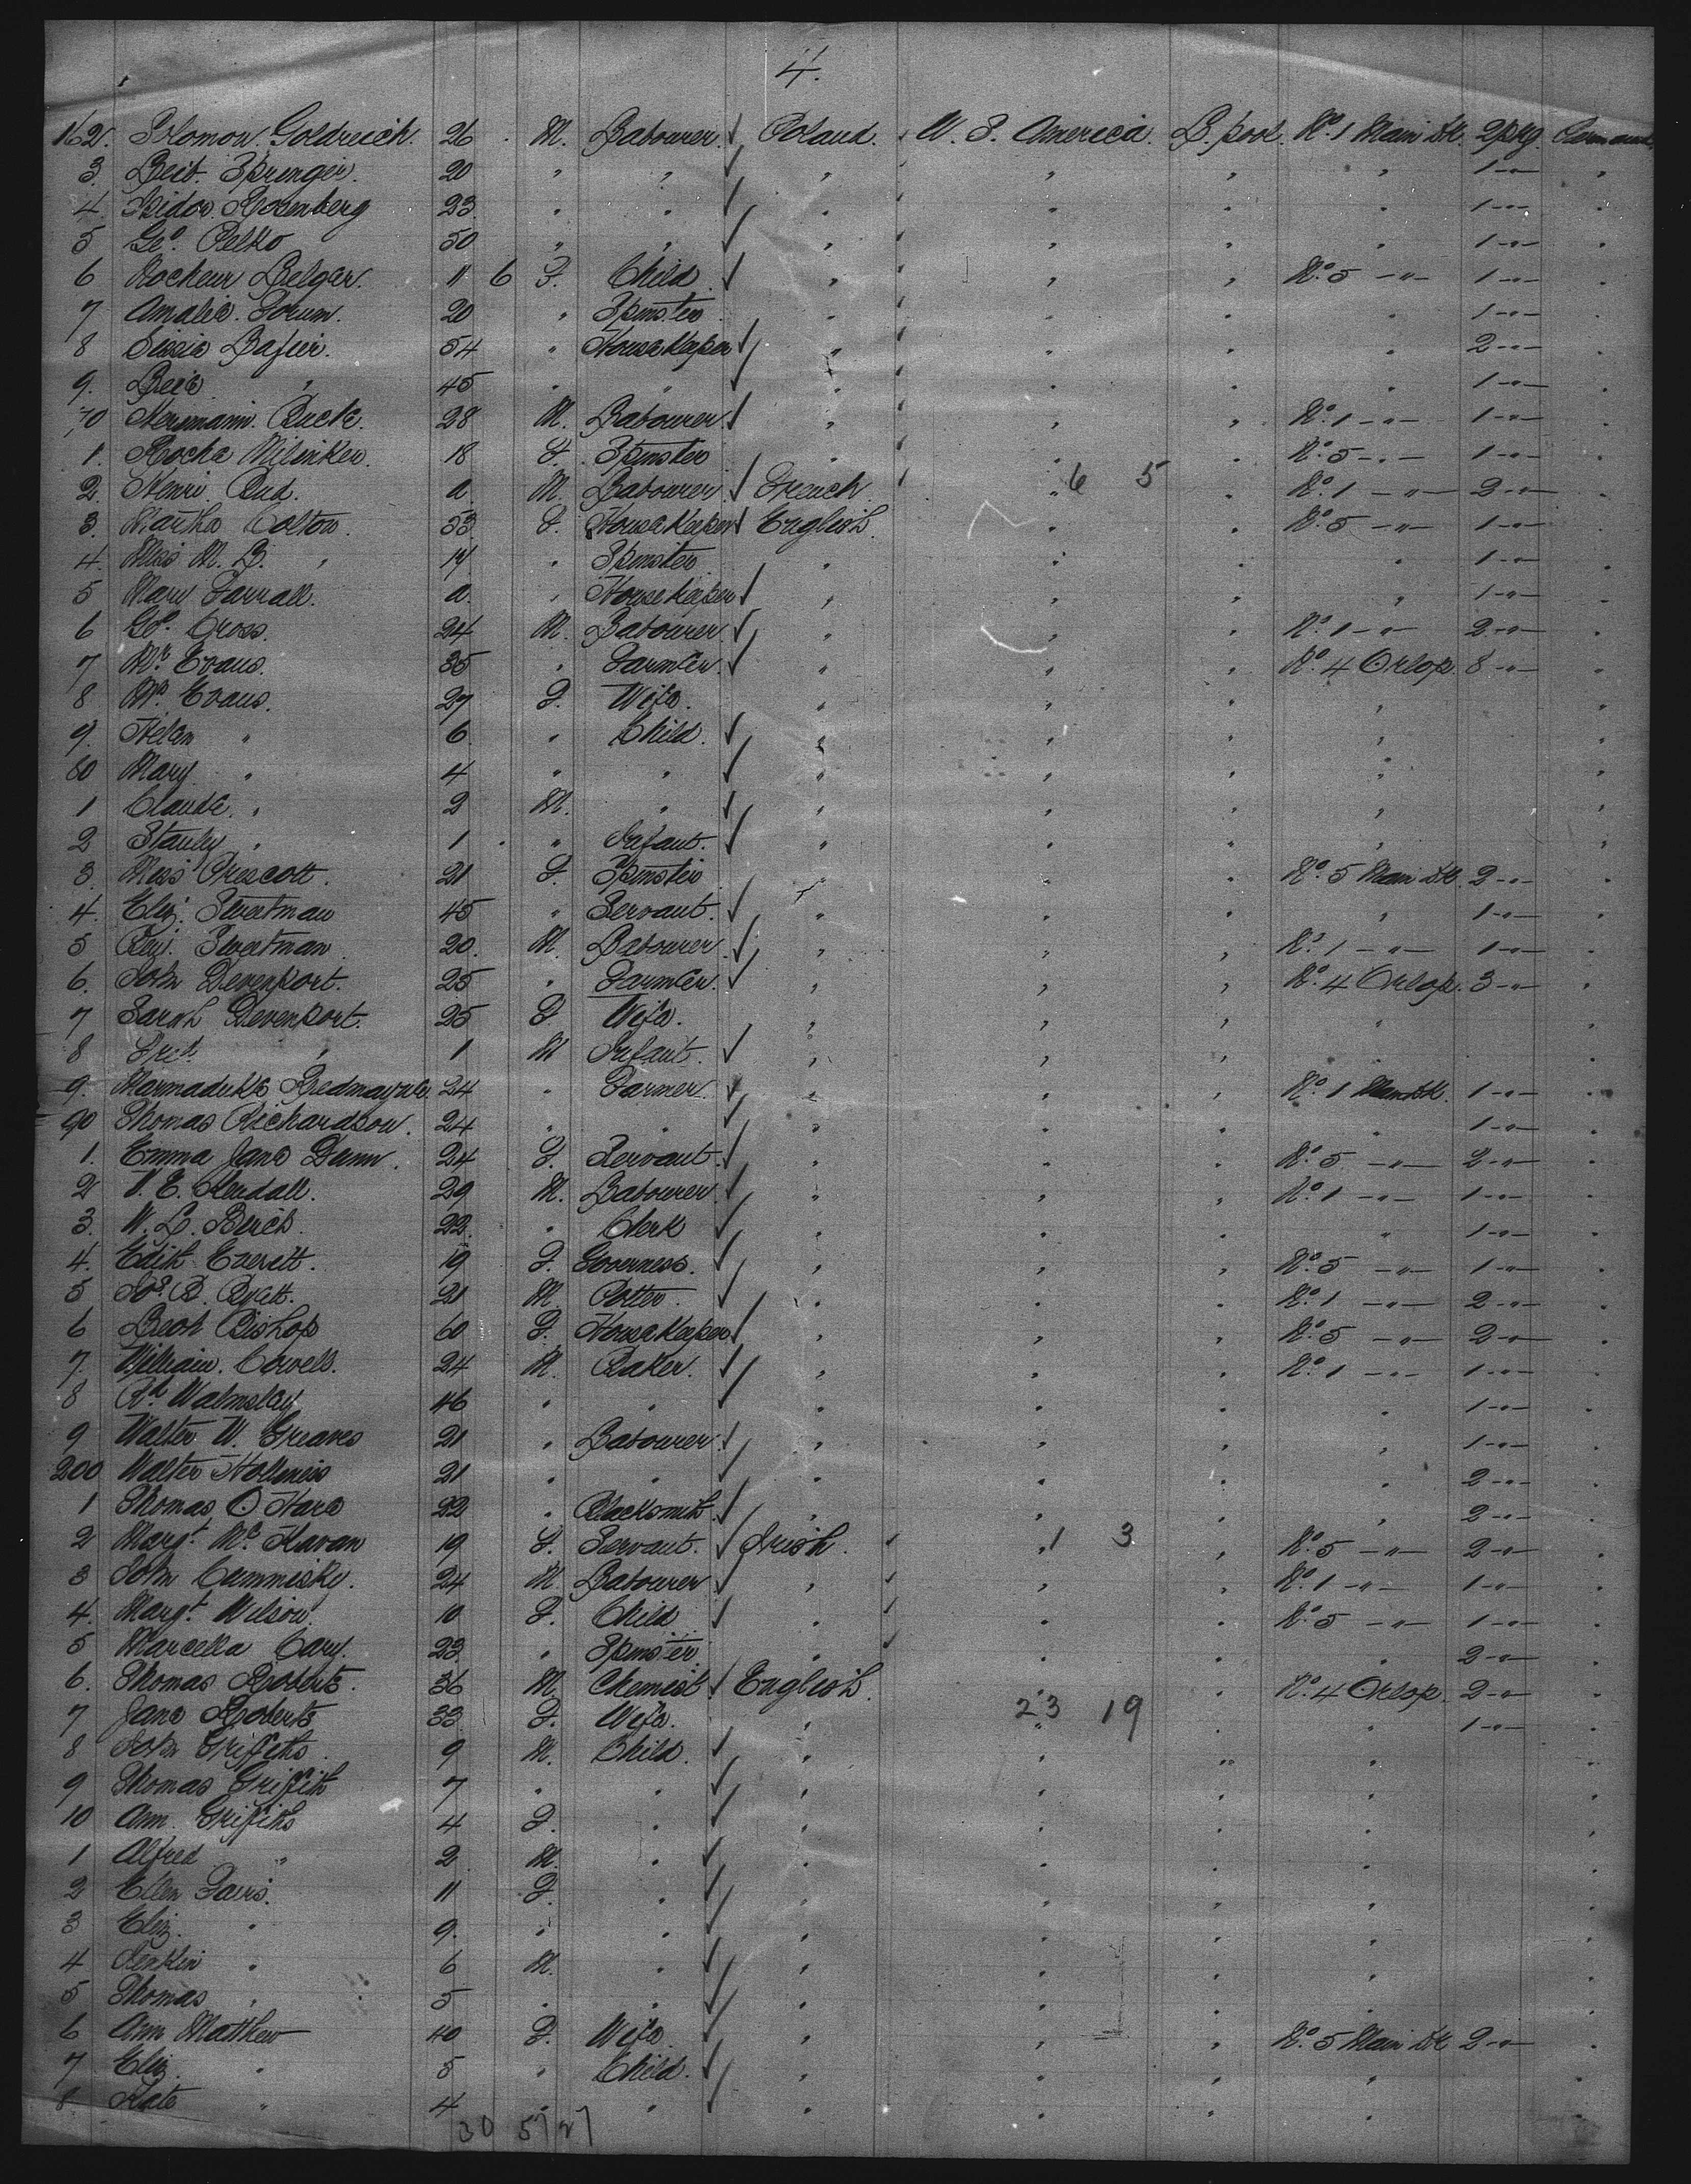 4.
162. Solomon Goldreich. 26 M. Labourer Poland. U. S. America. L.pool. No. 1 Main Dk. 2 pkg. Permanent
3. Leib. Springer. 20 " " " " " " 1 -"- "
4. Isidor Rosenberg 23 " " " " " " 1 -"- "
5 Geo. Pelko 50 " " " " " " 1 -"- "
6 Belgar. 11 6 F. Child " " " No. 5 -"- 1 -"- "
7 Amalie. 20 " Spinster " " " " 1 -"- "
8 54 " Housekeeper " " " " 2 -"- "
9. " 45 " " " " " " 1 -"- "
70 Herrmann. 28 M. Labourer " " " No. 1 -"- 1 -"- "
1. Rocha Milinker. 18 F. Spinster " " " No. 5 -"- 1 -"- "
2. Henri. Rud. a. M. Labourer French " 6 5 " No. 1 -"- 2 -"- "
3. Martha Colton. 53 F. Housekeeper English. " " No. 5 -"- 1 -"- "
4. Miss M. B. " 17 " Spinster " " " " 1 -"- "
5 Mary Farrall. a. " Housekeeper " " " " 1 -"- "
6 Geo. Cross. 24 M. Labourer " " " No. 1 -"- 2 -"- "
7 Mr. Evans. 35 " Farmer. " " " No. 4 Orlop. 8 -"- "
8 Mrs. Evans. 27 F. Wife. " " " " "
9. Helen " 6 " Child. " " " " "
80 Mary " 4 " " " " " " "
1 Claude. " 2 M. " " " " " "
2 Stanley " 1 " Infant. " " " " "
3. Miss Prescott. 21 F. Spinster " " " No. 5 Main Dk. 2 -"- "
4. Eliz. Sweetman 45 " Servant. " " " " 1 -"- "
5 Benj. Sweetman 20. M. Labourer " " " No. 1 -"- 1 -"- "
6. John Devenport. 25 " Farmer. " " " No. 4 Orlop. 3 -"- "
7 Sarah Devenport. 25 F. Wife. " " " " "
8 Fred. " 1 M Infant. " " " " "
9. Marmaduke Redmayne. 24 " Farmer. " " " No. 1 Main Dk. 1 -"- "
90 Thomas Richardson. 24 " " " " " " 1 -"- "
1. Emma Jane Dunn. 24 F. Servant. " " " No. 5 -"- 2 -"- "
2 E. Kendall. 29 M. Labourer " " " No. 1 -"- 1 -"- "
3. W. L. Birch. 22. " Clerk " " " " 1 -"- "
4. Edith Everett. 19 F. Governess. " " " No. 5 -"- 1 -"- "
5 Jos. B. Byatt. 21 M. Potter. " " " No. 1 -"- 2 -"- "
6 Leah Bishop 60 F. Housekeeper " " " No. 5 -"- 2 -"- "
7. William. Cowell. 24 M. Baker. " " " No. 1 -"- 1 -"- "
8 Rd. Walmsley 46 " " " " " " 1 -"- "
9 Walter W. Greaves 21 " Labourer " " " " 1 -"- "
200 Walter Holmes 21 " " " " " " 2 -"- "
1 Thomas O'Hara 22 " Blacksmith. " " " " 2 -"- "
2 Margt. Mc. Havan 19 F. Servant. Irish. " 1 3 " No. 5 -"- 2 -"- "
3 John Cummisky. 24 M. Labourer " " " No. 1 -"- 1 -"- "
4. Margt. Wilson. 10 F. Child " " " No. 5 -"- 1 -"- "
5 Marcella Cary. 23. " Spinster. " " " " 2 -"- "
6. Thomas Roberts. 36 M. Chemist English. " " No. 4 Orlop. 2 -"- "
7 Jane Roberts 33 F. Wife. " " 23 19 " " 1 -"- "
8 John Griffiths. 9 M. Child. " " " " "
9 Thomas Griffith 7 " " " " " " "
10 Ann. Griffiths 4 F. " " " " " "
1 Alfred " 2 M. " " " " " "
2 Ellen Davis. 11 F. " " " " " "
3 Eliz. " 9. " " " " " " "
4 Jenkin " 6 M. " " " " " "
5 Thomas " 5 " " " " " " "
6 Ann Matthew 40 F. Wife " " " No. 5 Main Dk 2 -"- "
7 Eliz. " 5 " Child. " " " " "
8 Kate " 4 " " " " " " "
30 57 27